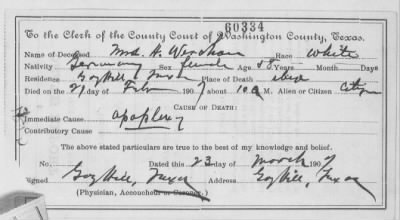 60334
To the Clerk of the County Court of Washington County, Texas.
Name of Deceased Mrs. H. Race White
Nativity Germany Sex female Age 58 Years Month Days
Residence Gay Hill, Texas Place of Death above
Died on the 21 day of Feb 1907 about 10 a M. Alien or Citizen Citizen
CAUSE OF DEATH:
Immediate Cause apoplexy
Contributory Cause
The above stated particulars are true to the best of my knowledge and belief.
No. Dated this 23 day of March 1907
Signed Gay Hill, Texas Address Gay Hill, Texas
(Physician, Accoucheur or Coroner.)